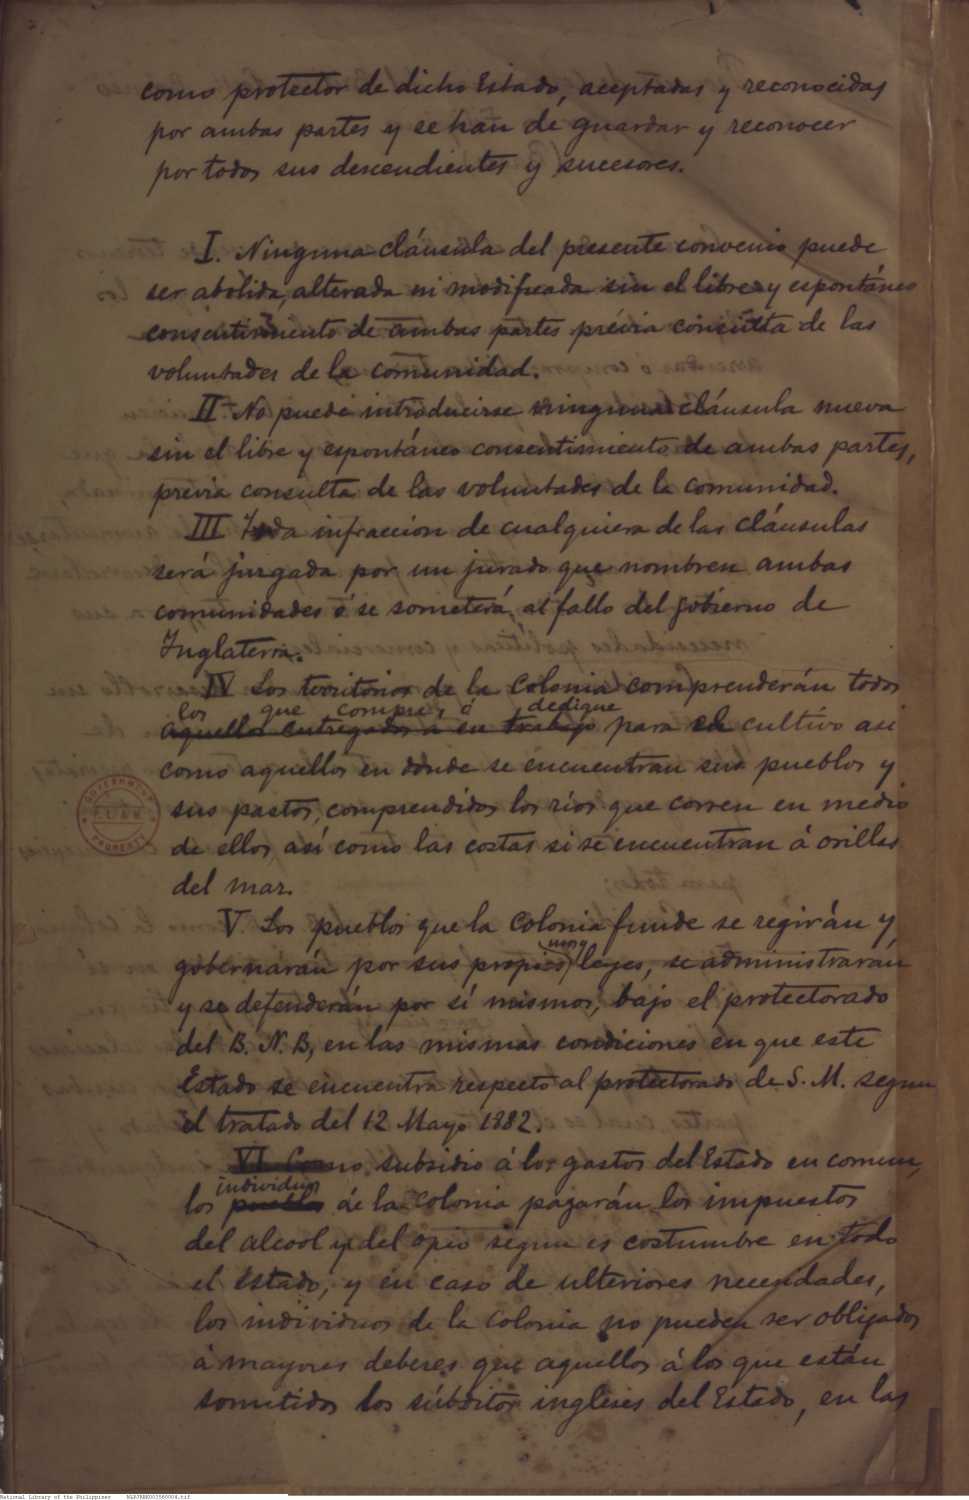 como protector de dicho Estado, aceptadas y reconocidas
por ambas partes y se han de guardar y reconocer
por todos sus descendientes y sucesores.
I. Ninguna cláusula del presente convenio puede
ser abolida, alterada ni modificada sin el libre y espontáneo
consentimiento de ambas partes prévia consulta de las
voluntades de la comunidad.
II - No puede introducirse ninguna cláusula nueva
sin el libre y espontáneo consentimiento de ambas partes,
previa consulta de las voluntades de la comunidad.
III Toda infraccion de cualquiera de las cláusulas
será juzgada por un jurado que nombren ambas
comunidades ó se someterá al fallo del gobierno de
Inglaterra.
IV Los territorios de la Colonia comprenderán todos
los que compre, ó dedique
aquellos entregados á en trabajo para el cultivo asi
como aquellos en donde se encuentran sus pueblos y
sus pastos, comprendidos los rios que corren en medio
de ellos así como las costas si se encuentran á orillas
del mar.
V. Los pueblos que la Colonia funde se regirán y
gobernarán por sus propios leyes, se administrarán
y se defenderán por sí mismos, bajo el protectorado
del B. N. B, en las mismas condiciones en que este
Estado se encuentra respecto al protectorado de S. M. segun
el tratado del 12 Mayo 1882.
VI Como subsidio á los gastos del Estado en comun,
individuos
los pueblos de la Colonia pagarán los impuestos
del alcool y del opio segun es costumbre en todo
el Estado, y en caso de ulteriores necesidades,
los individuos de la Colonia no pueden ser obligados
á mayores deberes que aquellos á los que están
sometidos los súbditos ingleses del Estado, en las
GOVERNMENT
P.L. & M.
PROPERTY
National Library of the Philippines NLP